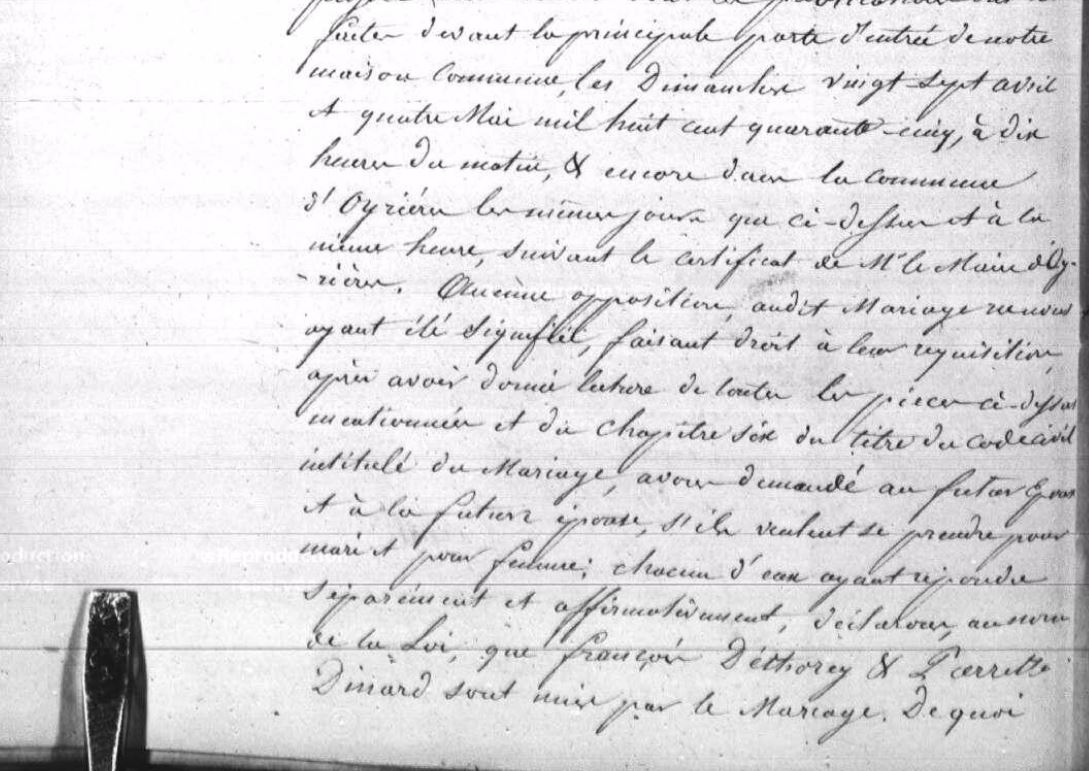 faites devant la principale porte d'entrée de notre
maison commune, les Dimanches vingt-sept avril
et quatre Mai mil huit cent quarante-cinq, à dix
heures du matin, & encore dans la commune
d'Oyrières les mêmes jours que ci-dessus et à la
même heure, suivant le certificat de Mr le Maire d'Oy-
-rières. Aucune opposition, audit Mariage ne nous
ayant été signifiée, faisant droit à leur réquisition,
après avoir donné lecture de toutes les pièces ci-dessus
mentionnées et du chapitre six du titre du code civil
intitulé du Mariage, avons demandé au futur Epoux
et à la future épouse, s'ils veulent se prendre pour
mari et pour femme; chacun d'eux ayant répondu
séparément et affirmativement, déclarons, au nom
de la Loi, que françois Déthorey & Pierrette
Dinard sont unis par le Mariage. De quoi